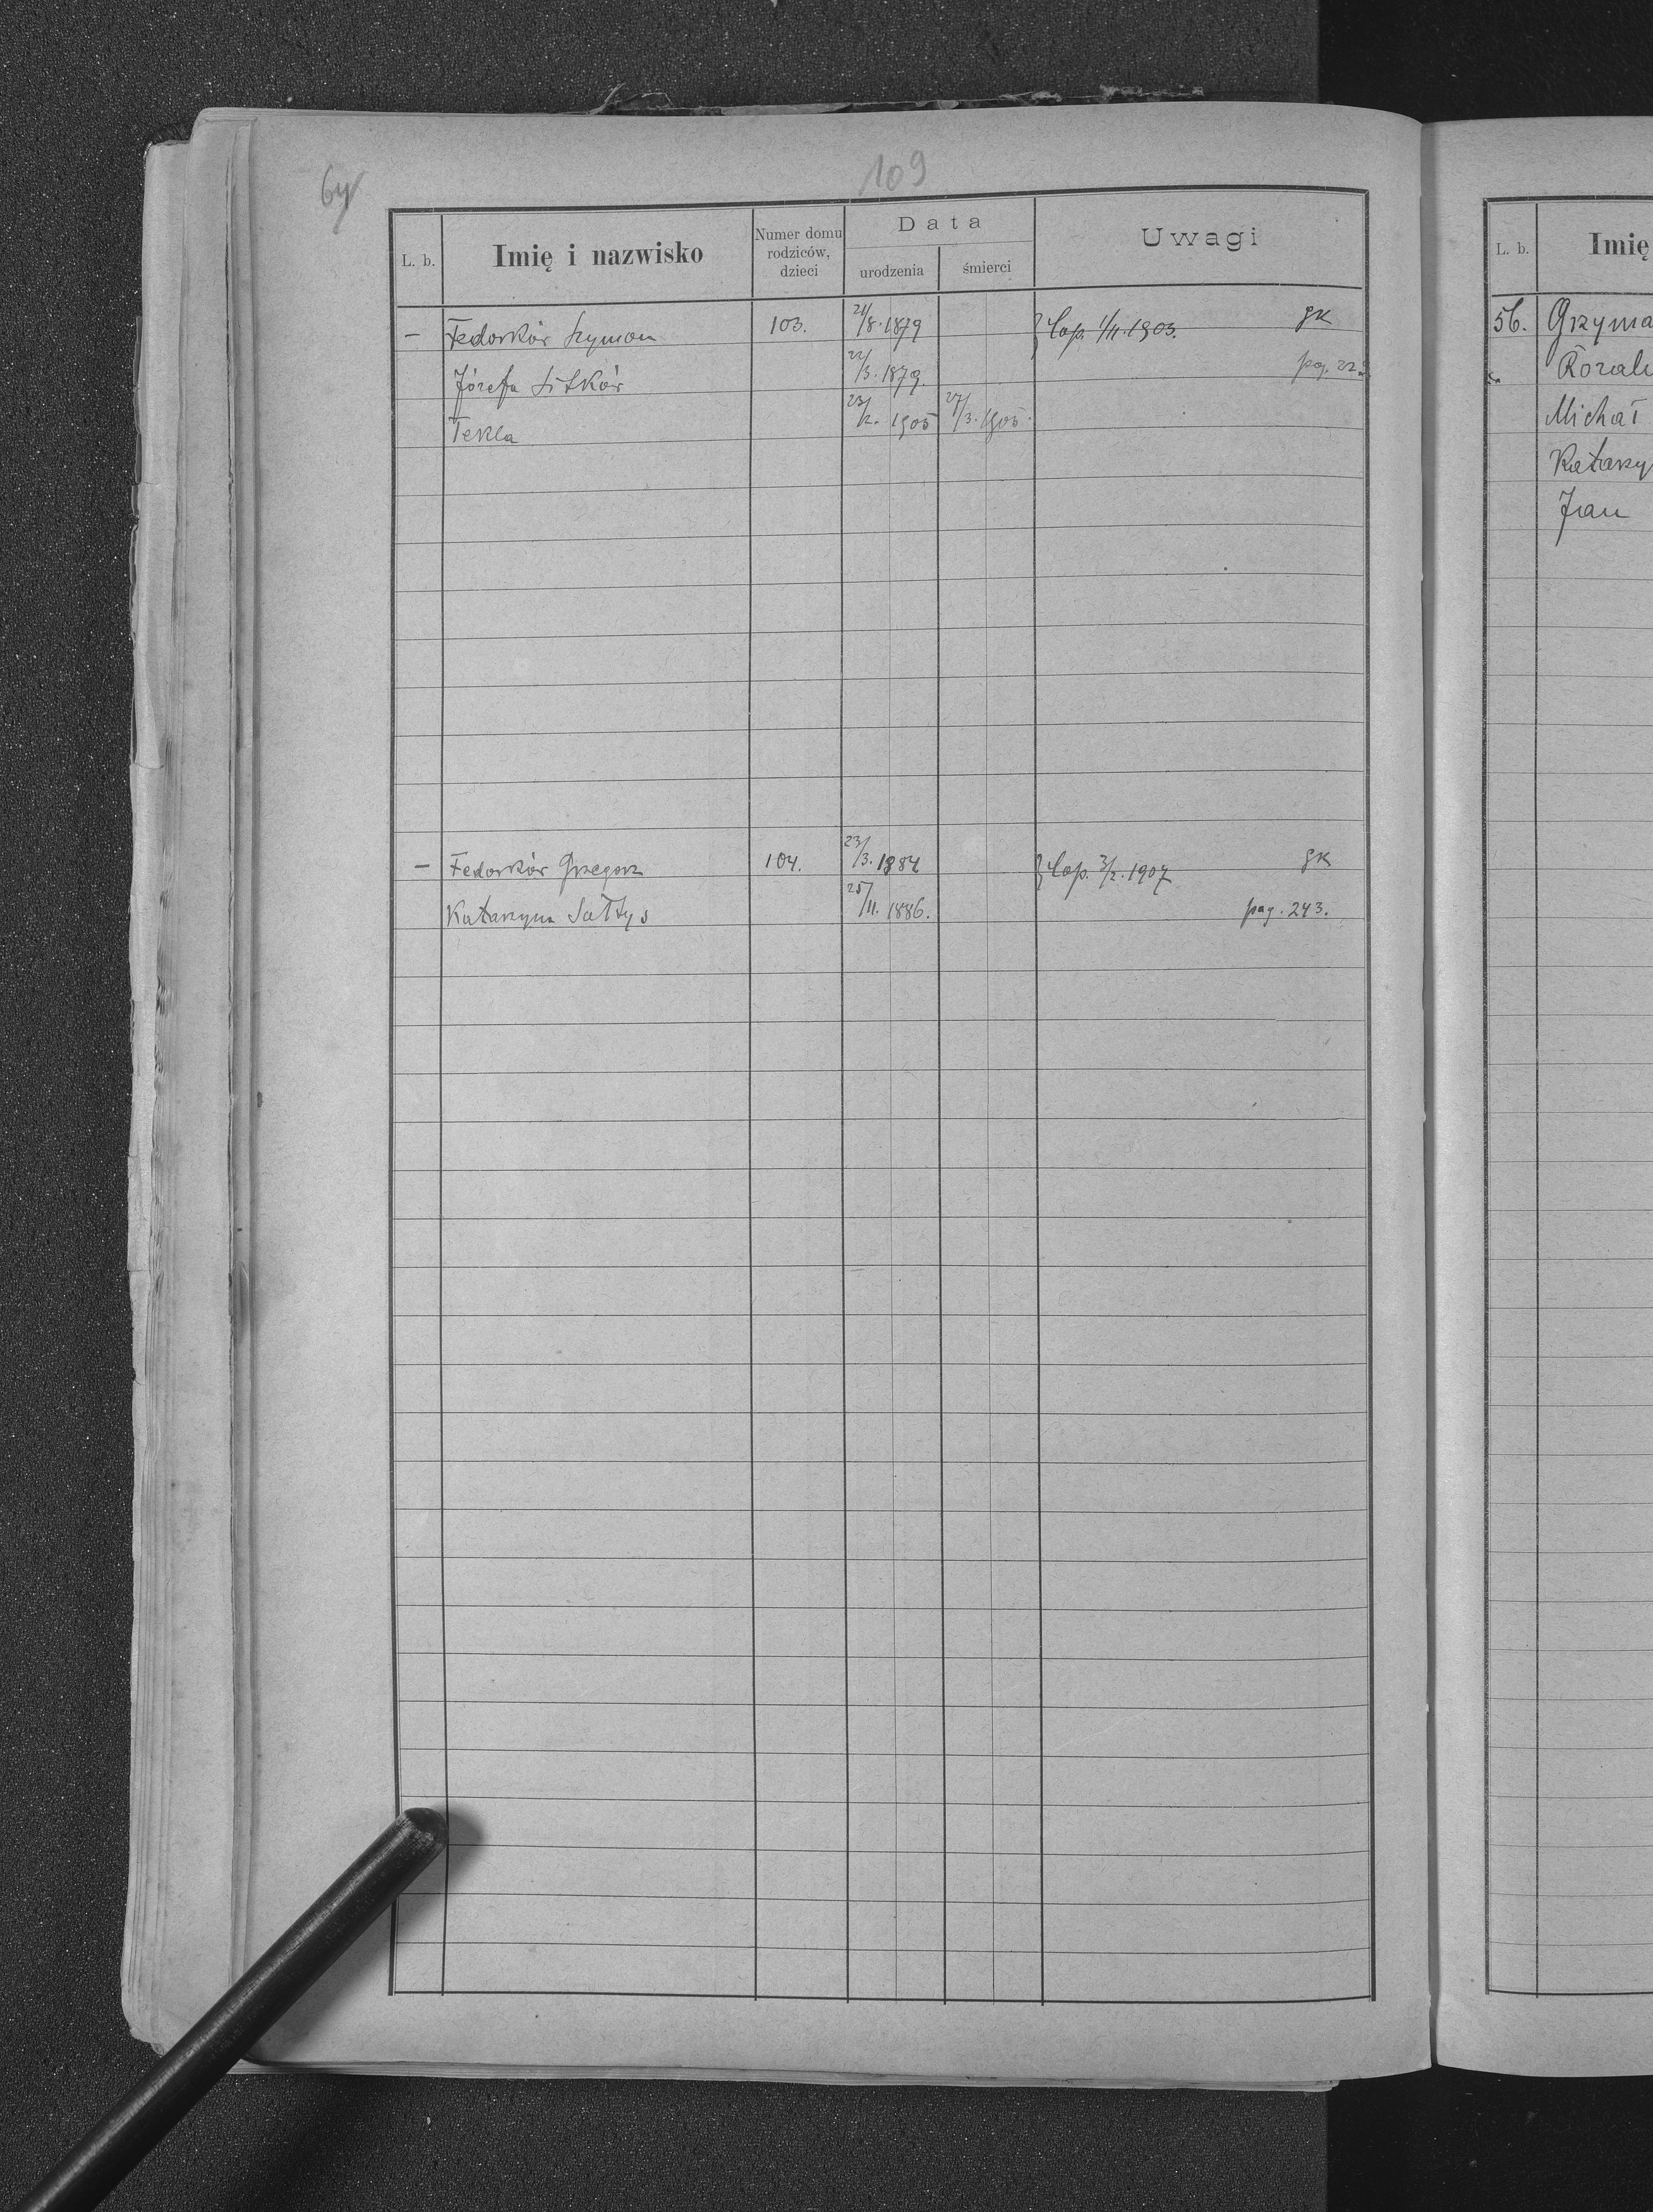 109
L. b. Imię i nazwisko Numer domu rodziców, dzieci Data urodzenia śmierci Uwagi
— Fedorków Szymon 103. 21/8. 1879 Cop. 1/11. 1903. gk
Józefa Sitków 22/3. 1879. pag. 22
Tekla 23/2. 1905 27/3. 1905
— Fedorków Grzegorz 104. 23/3. 1884 Cop. 3/2. 1907 gk
Katarzyna Sałtys 25/11. 1886. pag. 243.
L. b. Imię
56. Grzyma
Rozali
Michał
Katarzy
Jan